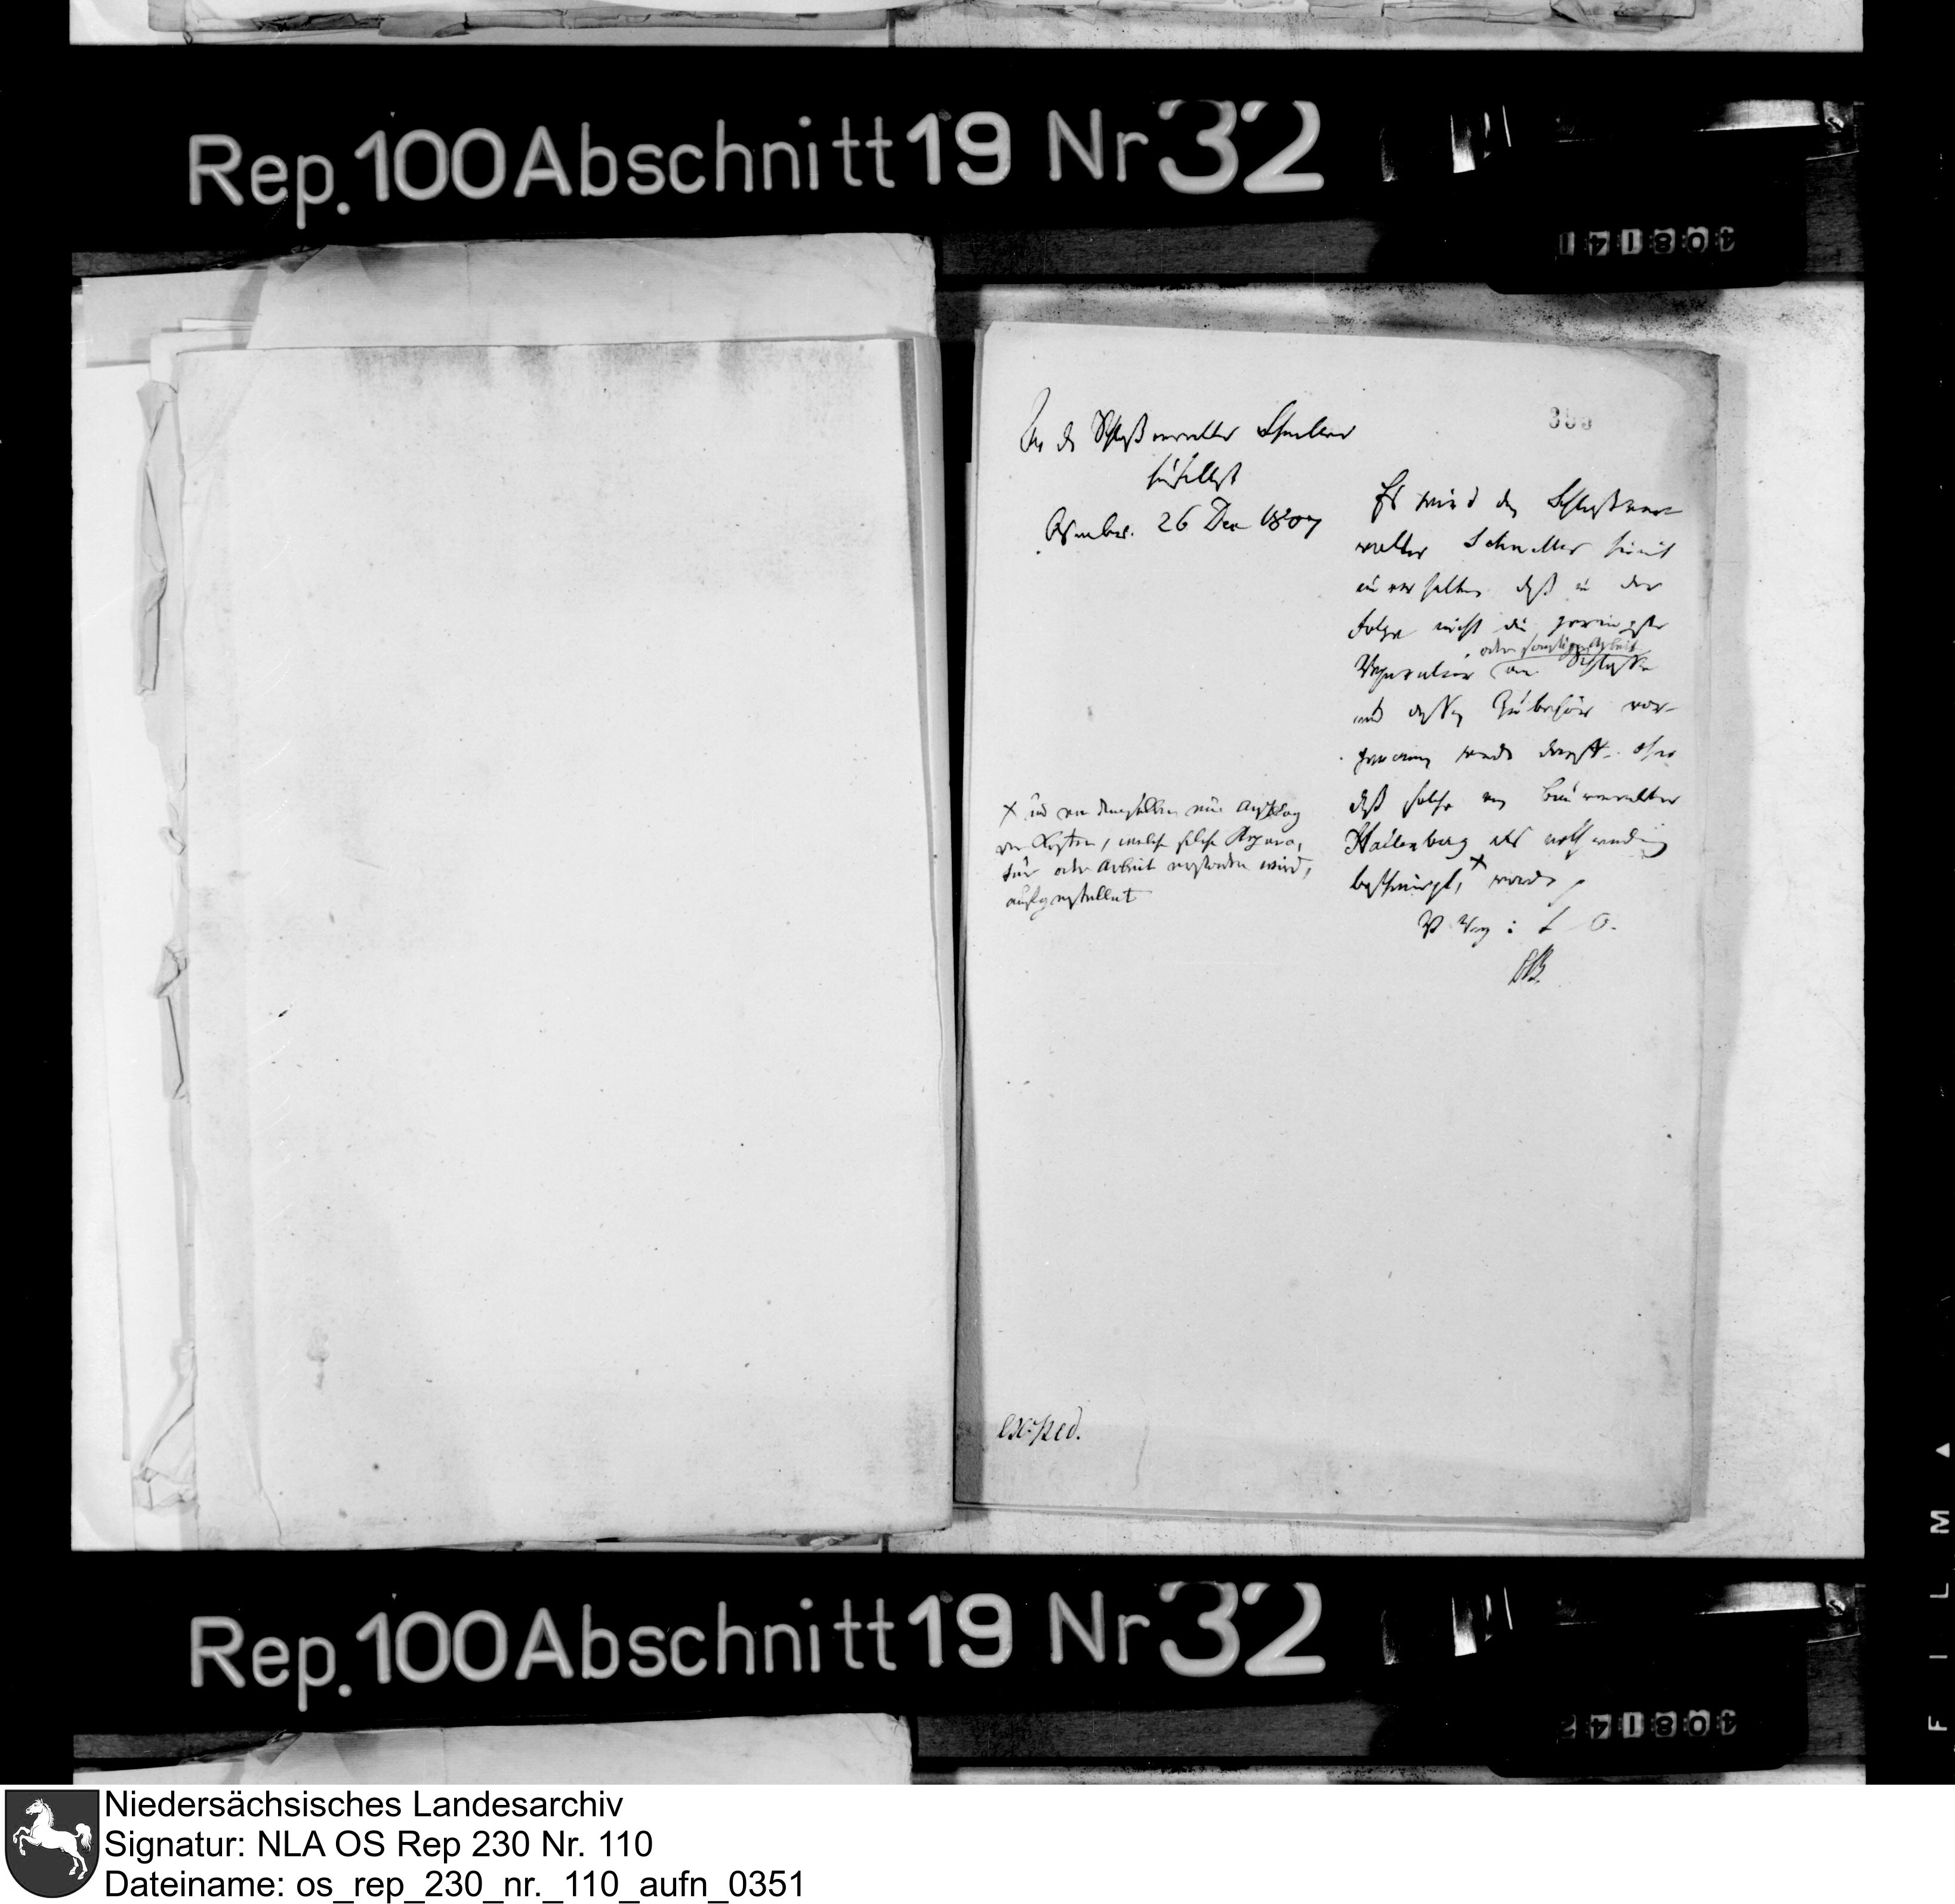 Rep. 100 Abschnitt 19 Nr 32
408141
An den Schloßverwalter Schneller
hieselbst
Osnabr. 26 Dec 1807
Es wird dem Schloßver-
walter Schneller hiemit
daß in der
Folge nicht die geringste
oder sonstige Arbeit
Reparation am Schlosse
und dessen Zubehör vor-
genommen werde ohne
daß solche vom Bauverwalter
Hollenberg als nothwendig
bescheinigt, × werde
× und von demselben ein Anschlag
der Kosten, welche solche Repara-
tur oder Arbeit erfordern wird,
aufgestellet
exped.
Rep. 100 Abschnitt 19 Nr 32
408142
FILM
Niedersächsisches Landesarchiv
Signatur: NLA OS Rep 230 Nr. 110
Dateiname: os_rep_230_nr._110_aufn_0351